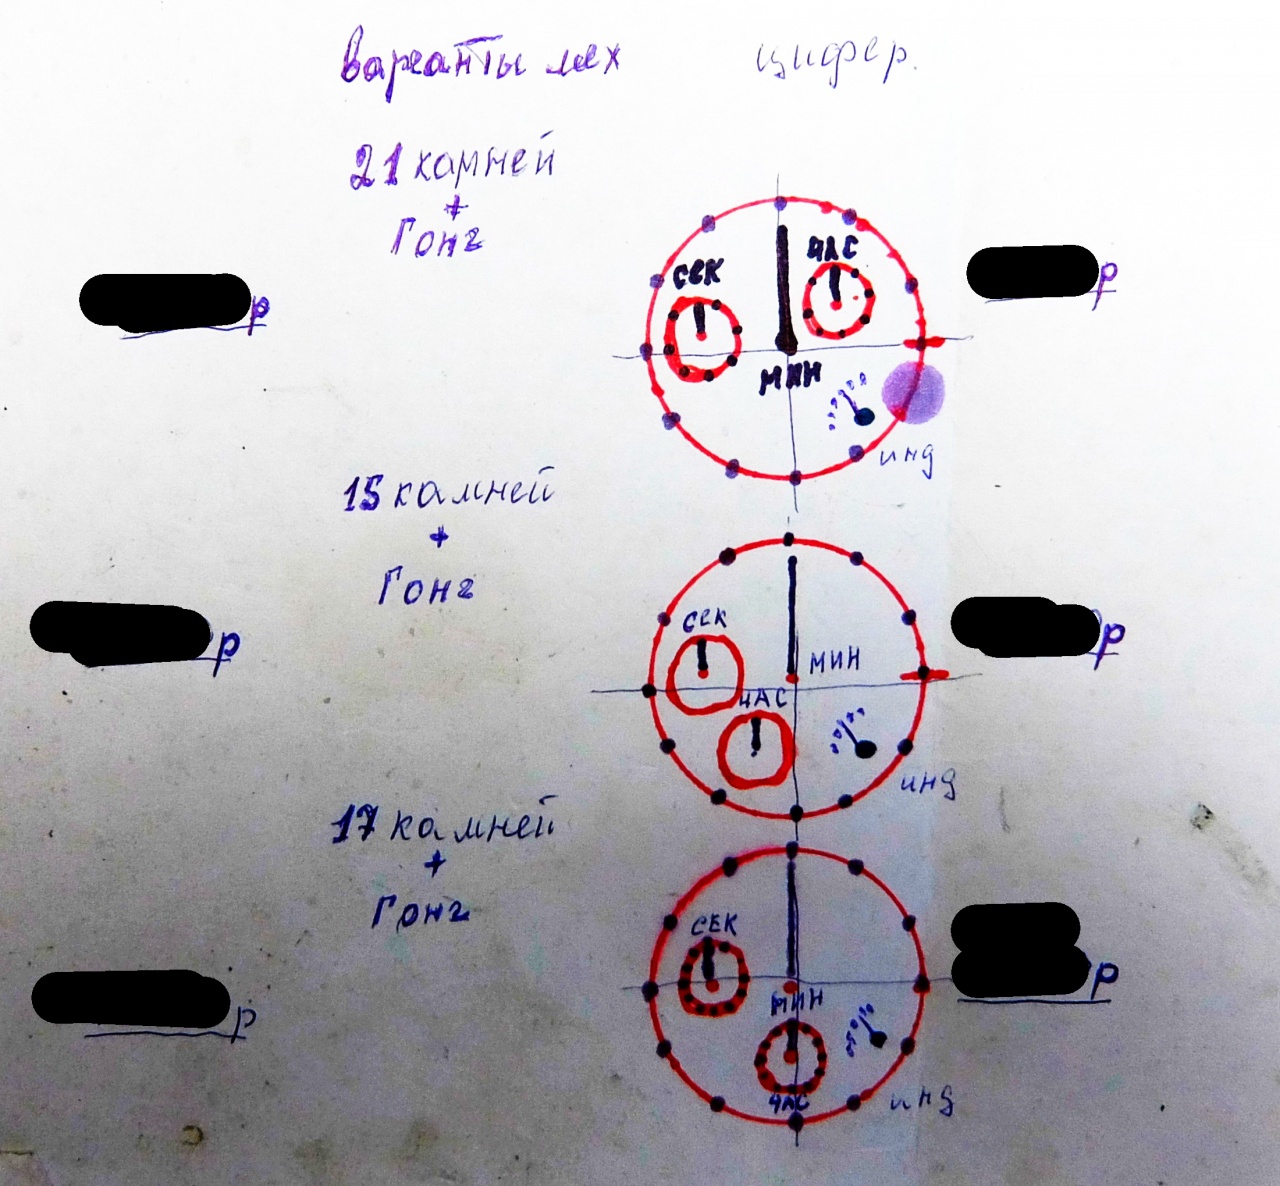 вареанты мех цифер.
21 камней
+
Гонг
ЧАС
СЕК
р
р
МИН
инд
15 камней
+
Гонг
СЕК
р
р
МИН
ЧАС
инд
17 камней
+
Гонг
СЕК
р
МИН
р
ЧАС
инд